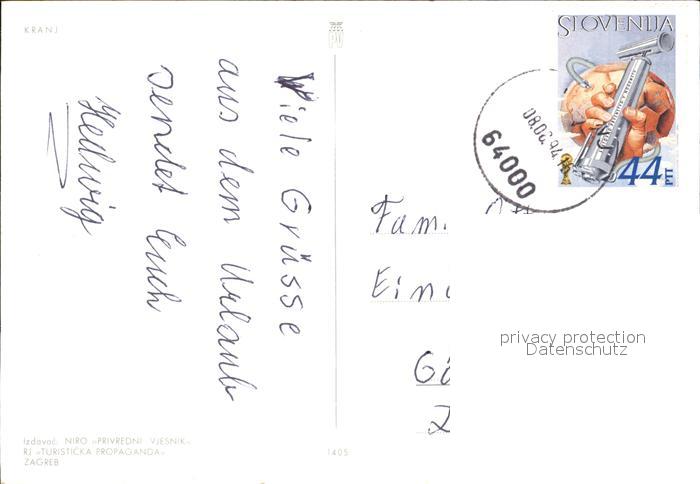 KRANJ
Viele Grüsse
aus dem Urlaub
sendet Euch
Hedwig
SLOVENIJA
44
PTT
64000
Fam.
privacy protection
Datenschutz
Izdavač: NIRO »PRIVREDNI VJESNIK«
RJ »TURISTIČKA PROPAGANDA«
ZAGREB
1405